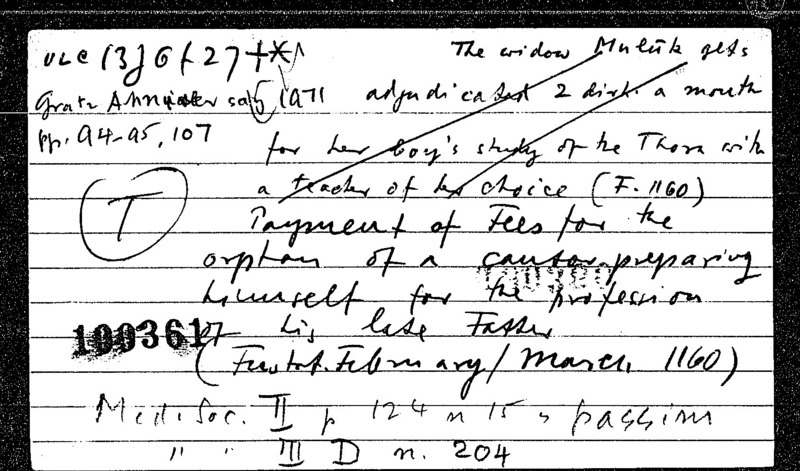 ULC (3) 6 f 27 + *
The widow Mulūk gets
Gratz Anniver sary 1971 adjudicated 2 dirh. a month
pp. 94-95, 107
for her boy's study of the Thora with
a teacher of her choice (F. 1160)
T
Payment of Fees for the
orphan of a cantor preparing
himself for the profession
of his late Father
100361
(Fustat. February/March 1160)
Med. Soc. II p 124 n 15, passim
" " III D n. 204